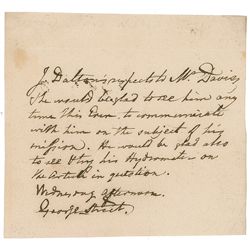 J. Dalton's respects to Mr. Davies
& he would be glad to see him any
time this Even. to communicate
with him on the subject of his
mission. He would be glad also
to see & try his Hydrometer on
the Article in question.
Wednesday afternoon.
George Street.